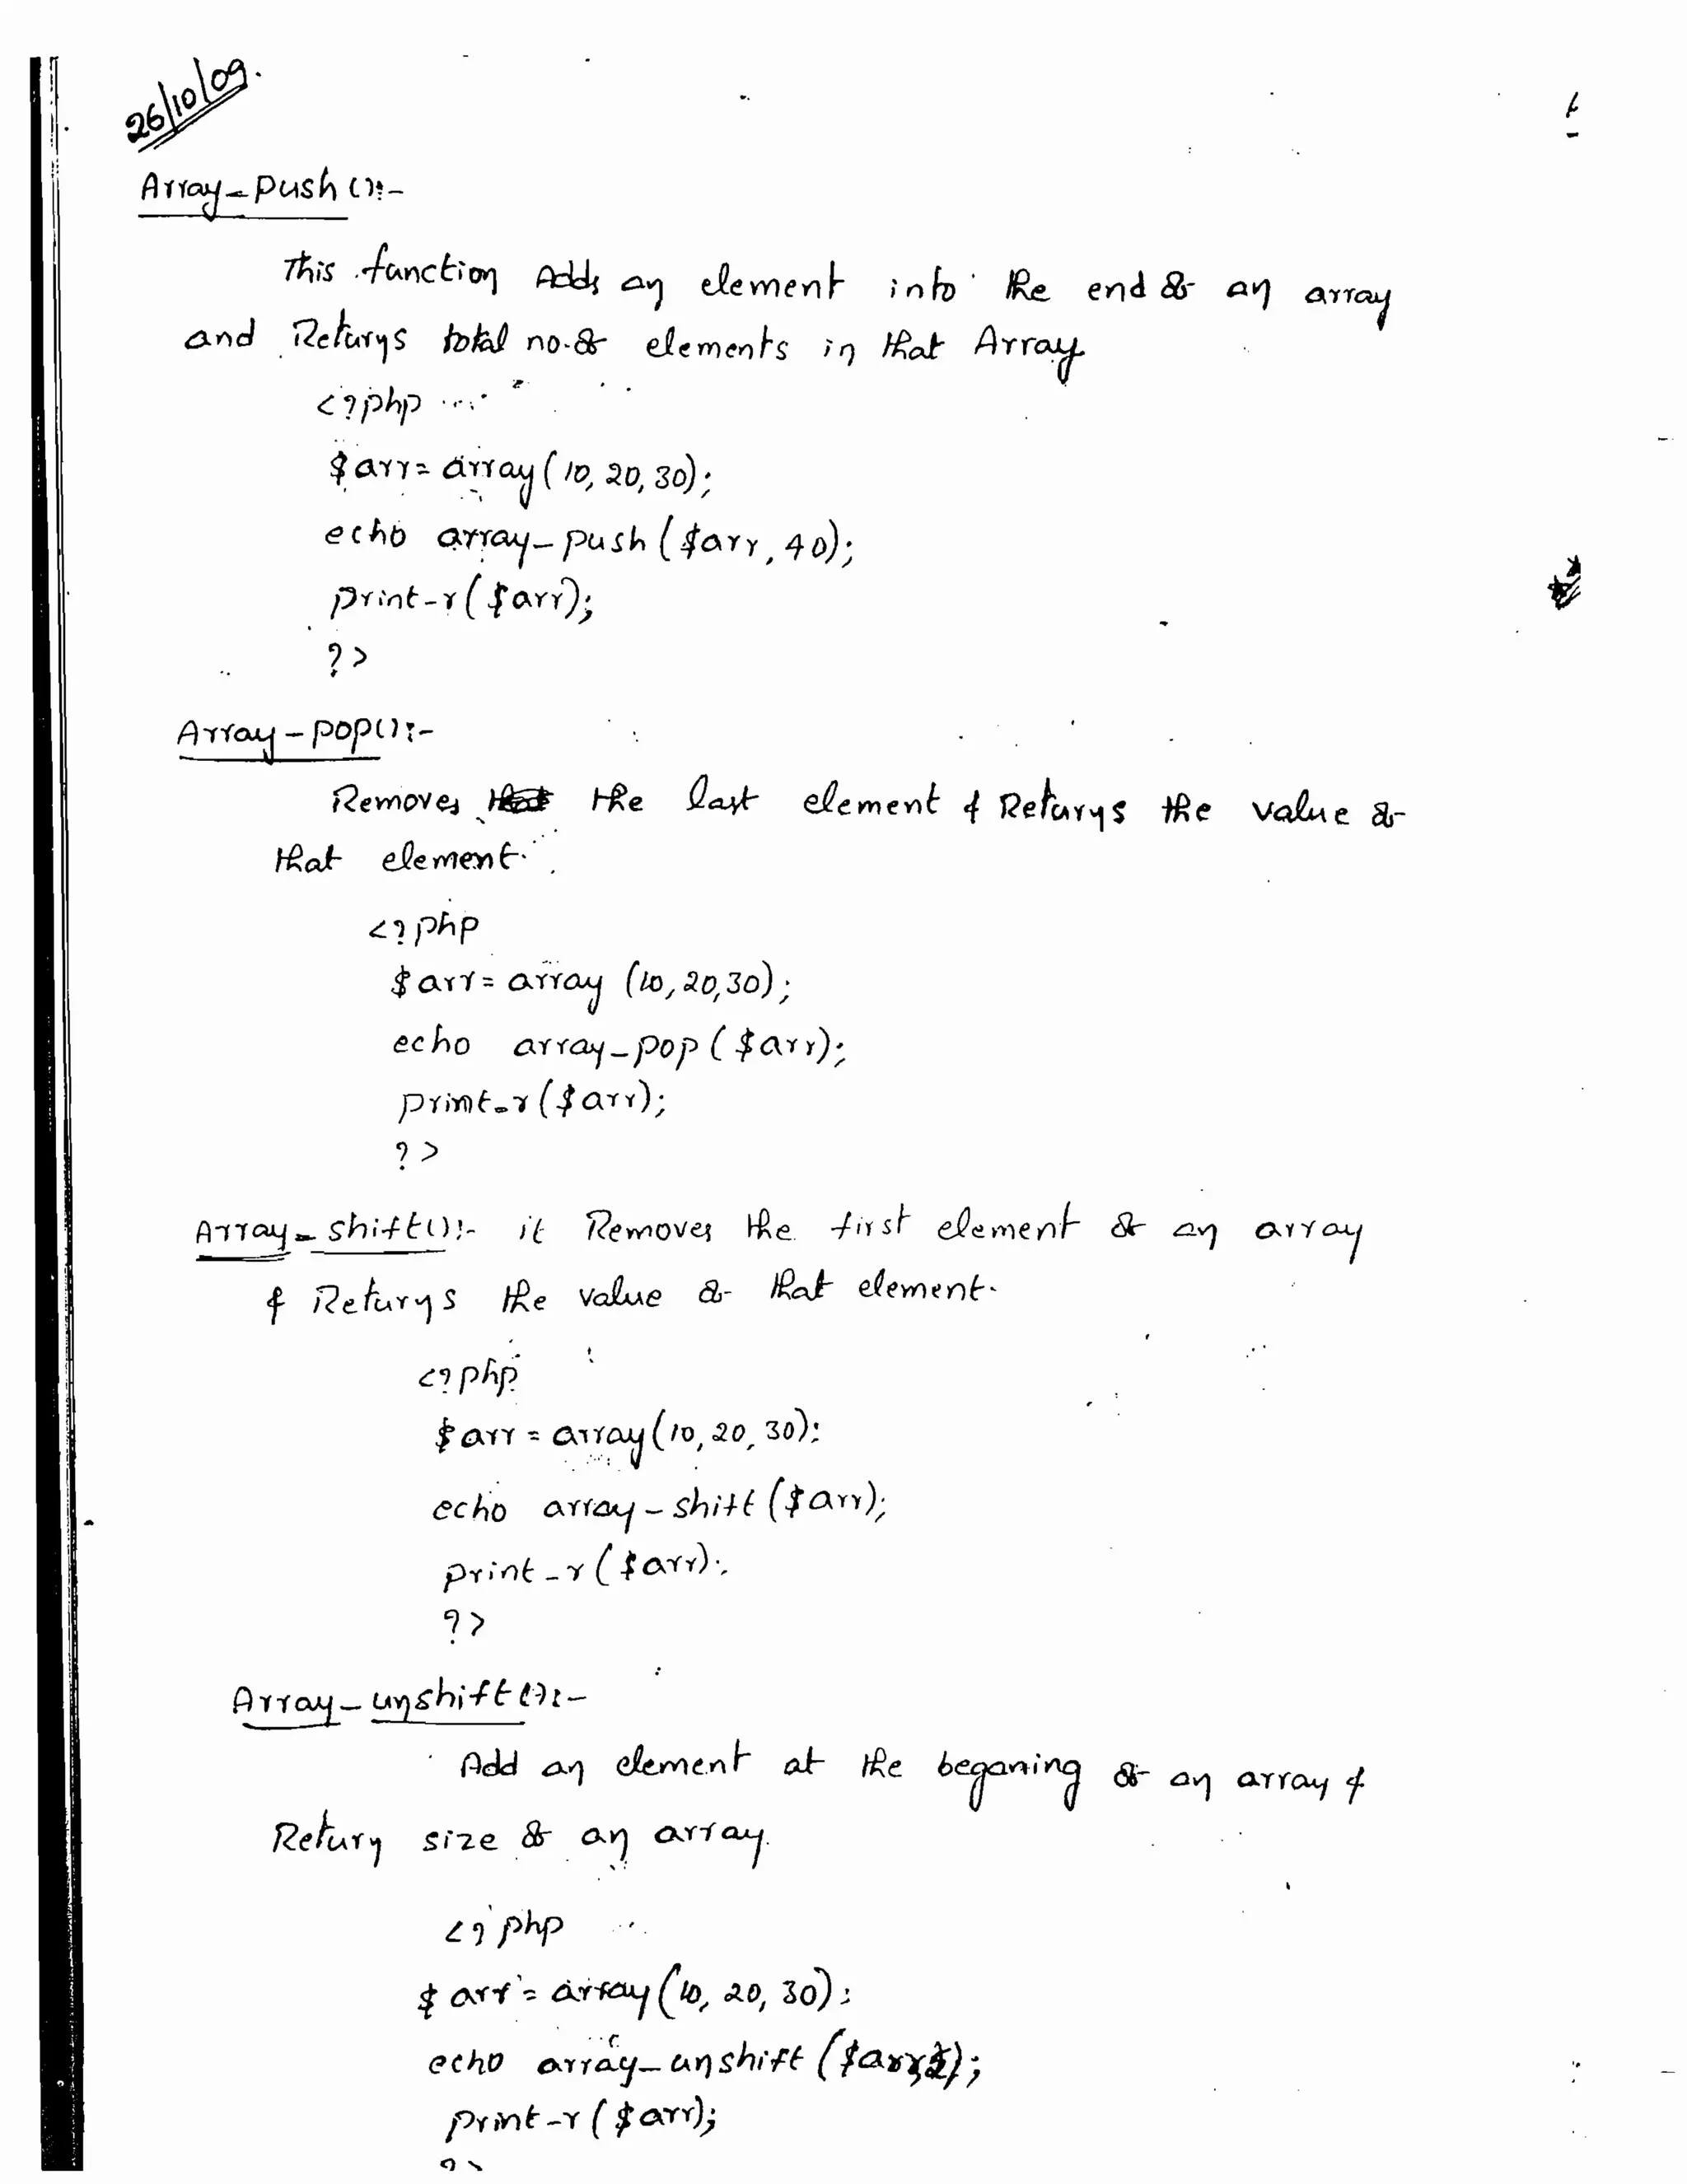 26/10/09.
Array_push():-
This function Adds an element into the end of an array
and Returns total no.of elements in that Array
<?php
$arr= array(10, 20, 30);
echo array_push($arr, 40);
print_r($arr);
?>
Array_pop():-
Removes the last element & Returns the value of
that element.
<?php
$arr= array (10,20,30);
echo array_pop($arr);
print_r($arr);
?>
Array_shift():- it Removes the first element of an array
& Returns the value of that element.
<?php
$arr = array(10, 20, 30);
echo array_shift($arr);
print_r($arr);
?>
Array_unshift():-
Add an element at the beganing of an array &
Return size of an array.
<?php
$arr = array(10, 20, 30);
echo array_unshift($arr,
print_r($arr);
?>